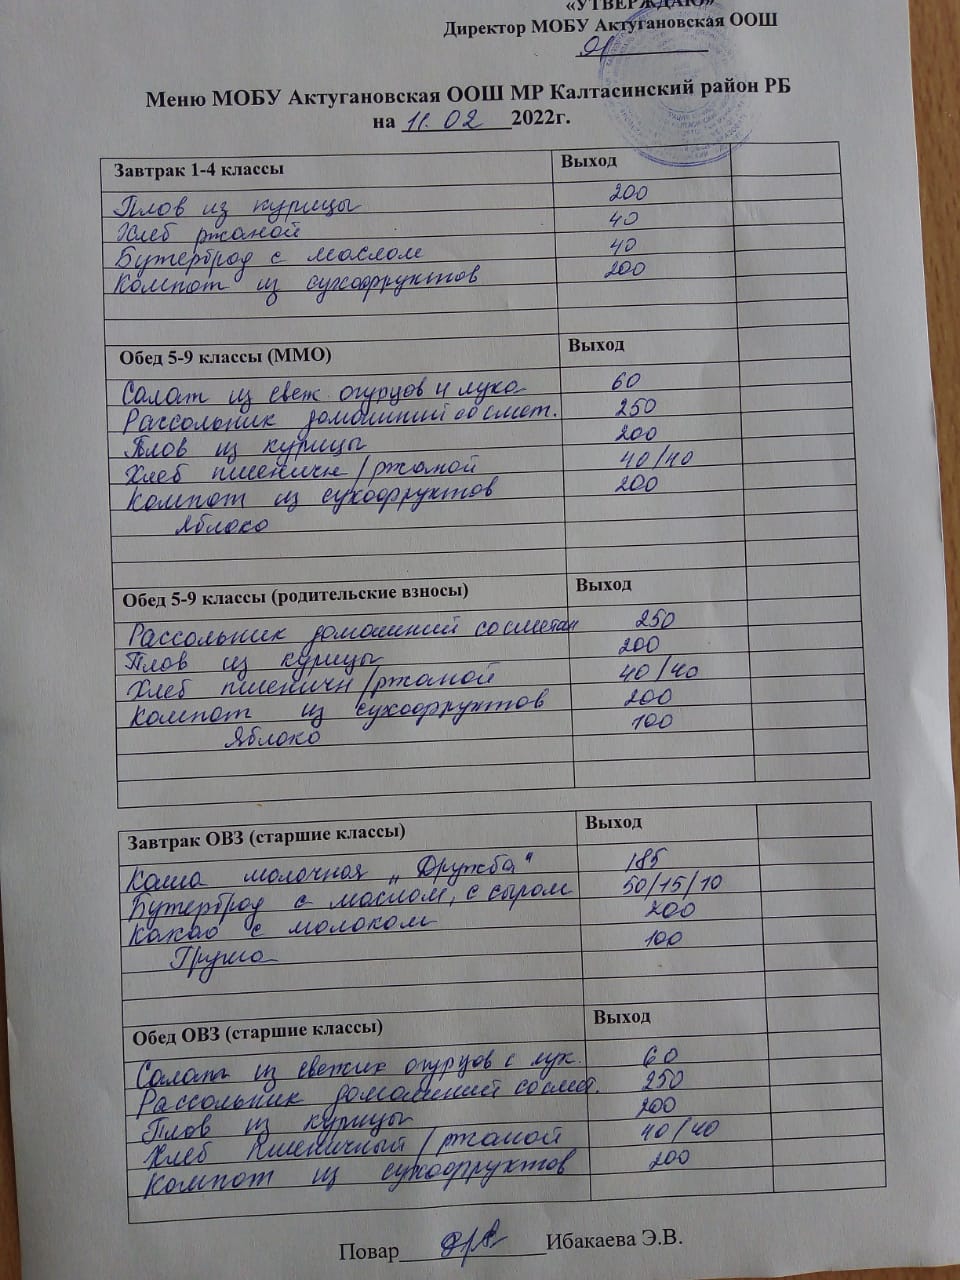 «УТВЕРЖДАЮ»
Директор МОБУ Актугановская ООШ
Меню МОБУ Актугановская ООШ МР Калтасинский район РБ
на 11.02 2022г.
Завтрак 1-4 классы Выход
Плов из курицы 200
Хлеб ржаной 40
Бутерброд с маслом 40
Компот из сухофруктов 200
Обед 5-9 классы (ММО) Выход
Салат из свеж огурцов и лука 60
Рассольник домашний со смет. 250
Плов из курицы 200
Хлеб пшеничн/ржаной 40/40
Компот из сухофруктов 200
Яблоко
Обед 5-9 классы (родительские взносы) Выход
Рассольник домашний со сметан 250
Плов из курицы 200
Хлеб пшеничн/ржаной 40/40
Компот из сухофруктов 200
Яблоко 100
Завтрак ОВЗ (старшие классы) Выход
Каша молочная „Дружба" 185
Бутерброд с маслом, с сыром 50/15/10
Какао с молоком 200
Груша 100
Обед ОВЗ (старшие классы) Выход
Салат из свежих огурцов с лук. 60
Рассольник домашний со смет. 250
Плов из курицы 200
Хлеб пшеничный/ржаной 40/40
Компот из сухофруктов 200
Повар Ибакаева Э.В.